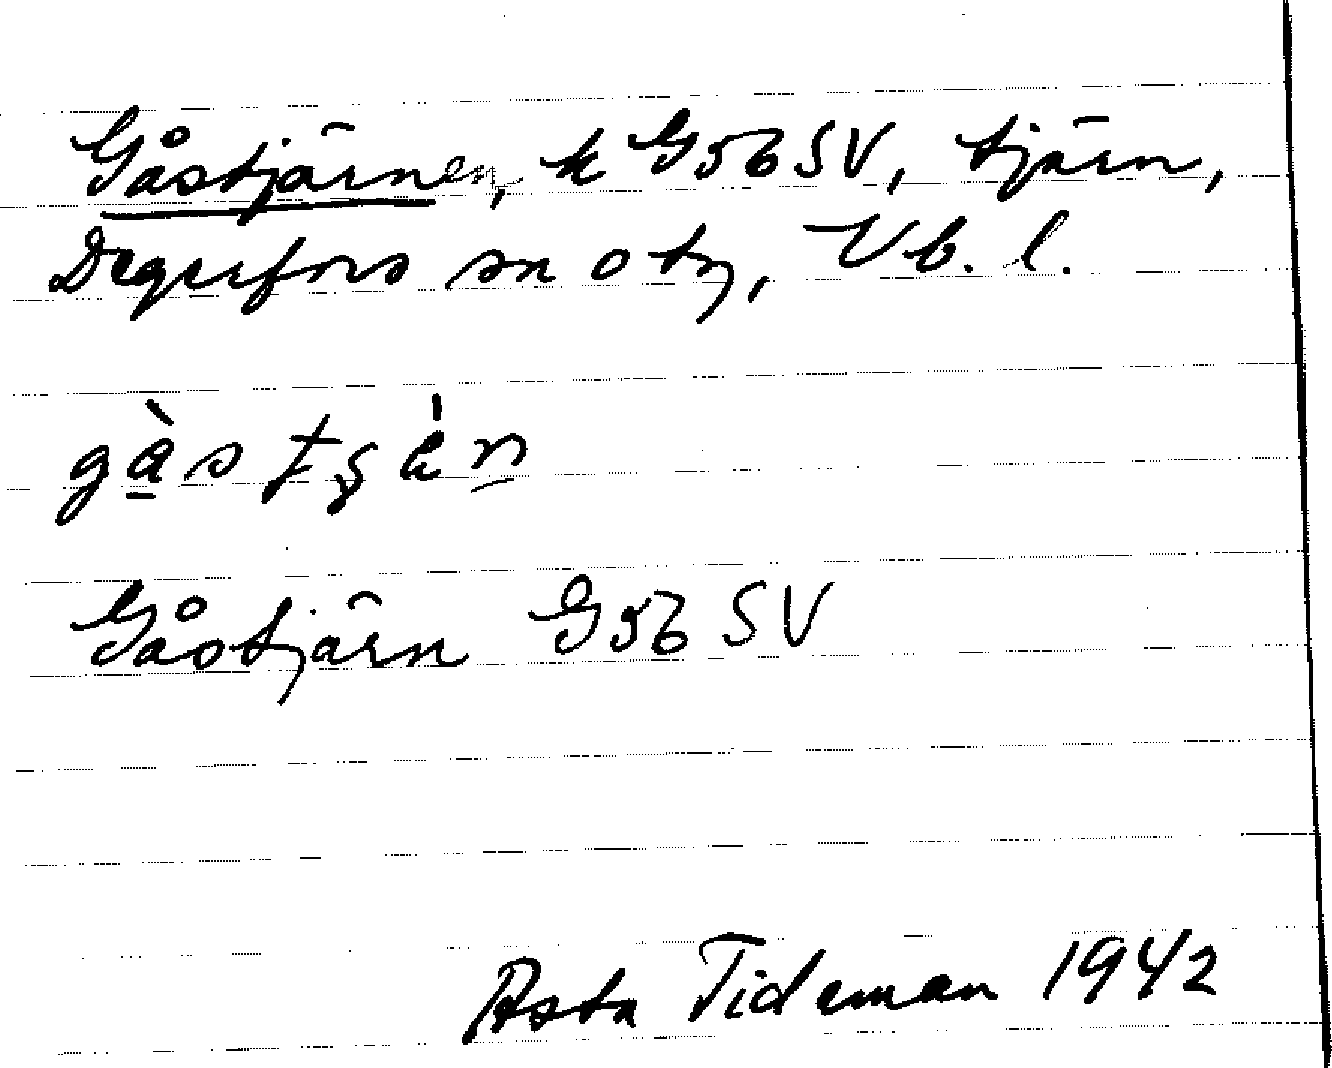 Gåstjärnen, k G56SV, tjärn,
Degerfors sn o tg, Vb. l.
Gåstjärn G56 SV
Asta Tideman 1942